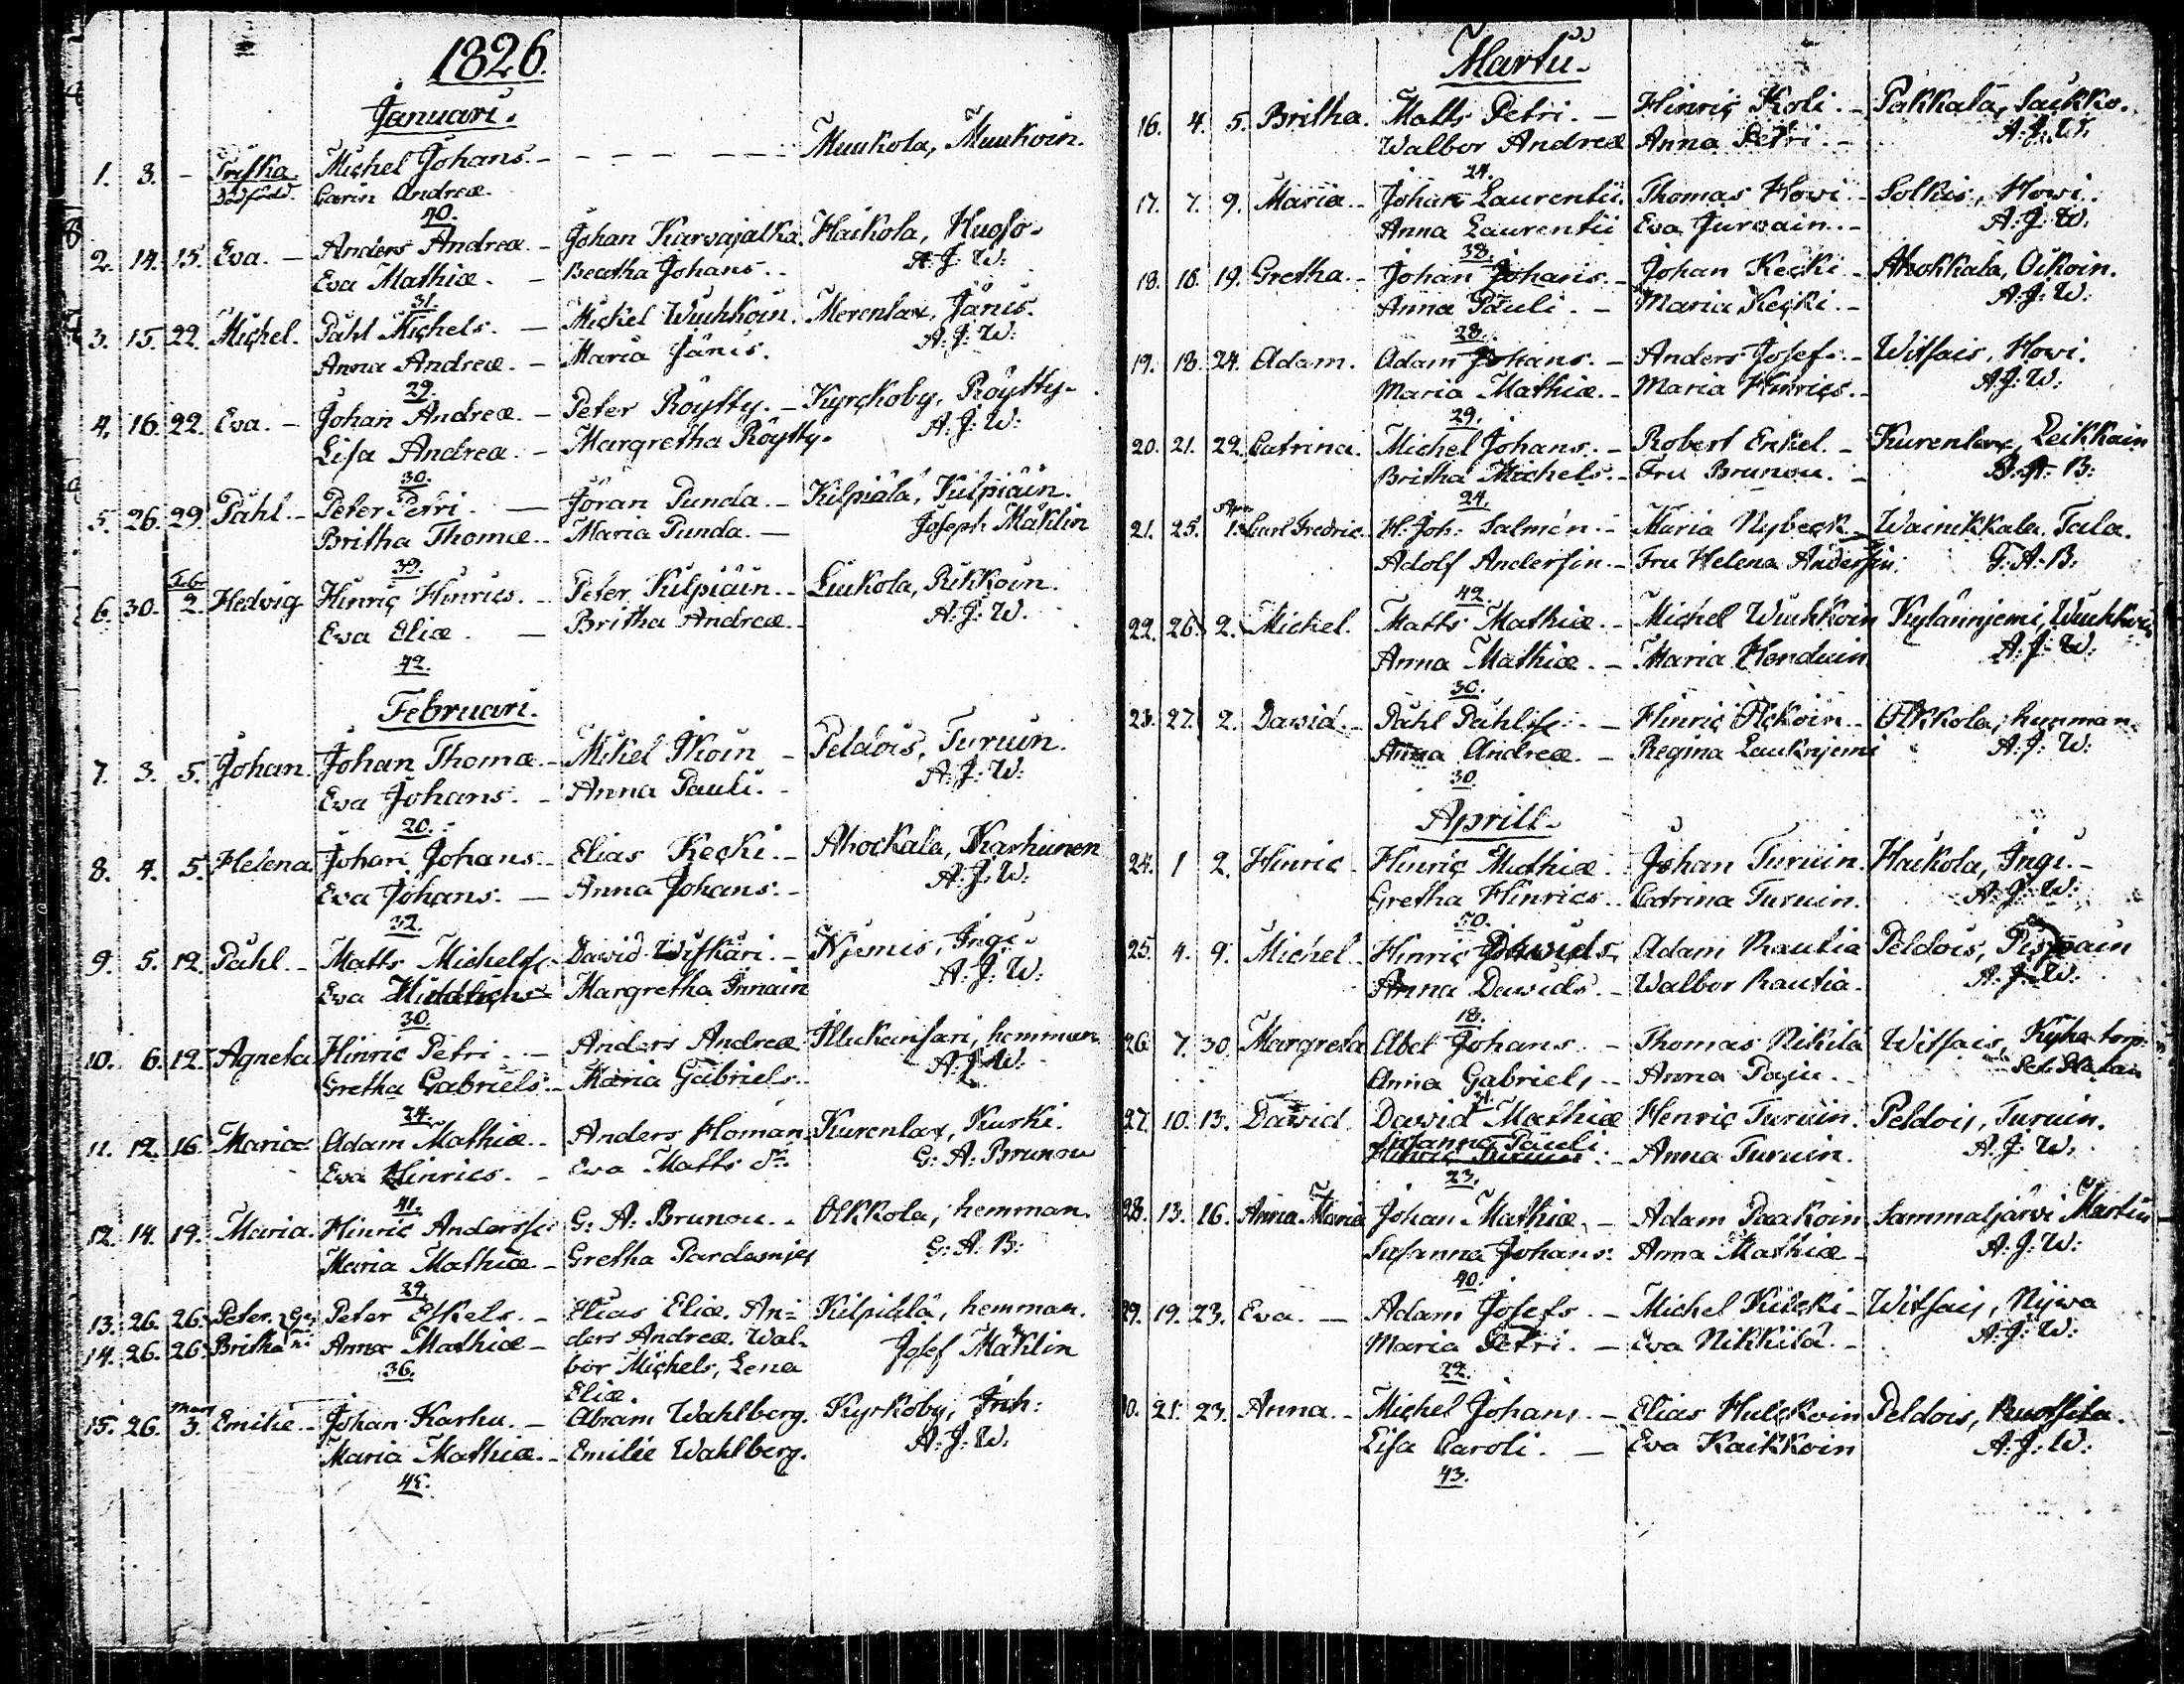 1826.
Januari.
1. 3. - Michel Johans. - - - - - - Muukola, Muukoin.
Dödfödd. Carin Andreæ.
40.
2. 14. 15. Eva. - Anders Andreæ - Johan Karvajalka. Haikola,
Eva Mathiæ. - Beatha Johans. - A: J: W:
31.
3. 15. 22. Michel. Påhl Michels. - Mickel Wuohkoin. Merenlax, Jänis.
Anna Andreæ. - Maria Jänis. A: J: W:
29.
4. 16. 22. Eva. - Johan Andreæ. - Peter Röytty. - Kyrckoby, Röytty.
Lisa Andreæ. - Margretha Röytty. A: J: W:
30.
5. 26. 29. Påhl. - Peter Petri. - Jöran Punda. - Kilpiälä, Kilpiäin.
Britha Thomæ. - Maria Punda. - Joseph Mäklin
39.
6. 30. Febr 2. Hedvig Hinric Hinrics. - Peter Kilpiäin. - Luukola, Rikkoin.
Eva Eliæ. - Britha Andreæ. - A: J: W.
42.
Februari.
7. 3. 5. Johan. Johan Thomæ. - Mikel Ikoin - Peldois, Turuin.
Eva Johans. - Anna Pauli. - A: J: W:
20.
8. 4. 5. Helena. Johan Johans. - Elias Kecki. - Ahockala, Karhunen
Eva Johans. - Anna Johans. - A: J: W:
32.
9. 5. 12. Påhl. - Matts Michelss. David - Njemis, Ingi.
Eva Margretha Innain A: J: W:
30.
10. 6. 12. Agneta Hinric Petri. - Anders Andreæ hemman.
Gretha Gabriels. - Maria Gabriels. - A: J: W:
24.
11. 12. 16. Maria Adam Mathiæ. - Anders Homan. Kurenlax, Kurki.
Eva Hinrics. - Eva Matts dr. G: A: Brunou
41.
12. 14. 19. Maria. Hinric Anderss. G: A: Brunou. - Olkkola, hemman.
Maria Mathiæ - Gretha G: A: B:
29.
13. 26. 26. Peter. Peter Eskels. - Elias Eliæ. An- Kilpiälä, hemman.
14. 26. 26. Britha Anna Mathiæ - ders Andreæ. Wal- Josef Mäklin
36. bor Michels, Lena
Eliæ.
15. 26. Mart 3. Emilie - Johan Karhu. - Abram Wahlberg. Kyrkoby, Inh:
Maria Mathiæ. - Emilie Wahlberg. A: J: W:
45.
Martii.
16. 4. 5. Britha. Matts Petri. - Hinric Koli. - Pakkala, Saukko.
Walbor Andreæ Anna Petri. - A: J: W.
24.
17. 7. 9. Maria - Johan Laurentii. Thomas Howi. - Solkis, Howi.
Anna Laurentii Eva Jurvain. - A: J: W.
38.
18. 18. 19. Gretha. - Johan Johans. - Johan Kecki - Ahokkala, Oikoin.
Anna Pauli. - Maria Kecki. - A: J: W:
28.
19. 18. 24. Adam. Adam Johans. - Anders Josefs. - Witsais, Howi.
Maria Mathiæ. - Maria Hinrics. - A: J: W:
29.
20. 21. 22. Catrina. Michel Johans. - Robert Enkel. - Kurenlax, Leikkain
Britha Michels. - Fru Brunou. -
24.
21. 25. Apr. 1. Carl Fredric. H: Joh: Salmén. - Maria Nybeck Wainikkala, Tala.
Adolf Andersin. - Fru Helena Andersin. G: A: B:
42.
22. 26. 2. Mickel. Matts Mathiæ. - Michel Wuohkoin Kylänniemi, Wuohkoin
Anna Mathiæ. - Maria A: J: W:
30.
23. 27. 2. Dawid. - Påhl Påhlss. - Hinric Olkkola, hemman.
Anna Andreæ. - Regina A: J: W:
30.
Aprill.
24. 1 2. Hinric - Hinric Mathiæ. Johan Turuin. Haikola, Ingi. -
Gretha Hinrics. - Catrina Turuin. A: J: W:
50.
25. 4. 9. Michel - Hinric Dawids. Adam Rautia Peldois,
Anna Dawids. - Walbor Rautia. A: J: W:
18.
26. 7. 30. Margreta Abel Johans. - Thomas Nikilä Witsais, torp.
Anna Gabriels. - Anna Paju. -
31.
27. 10. 13. Dawid. Dawid Mathiæ Henric Turuin. Peldois, Turuin.
Susanna Pauli - Anna Turuin. A: J: W.
23.
28. 13. 16. Anna Maria Johan Mathiæ. - Adam Paakoin Sammaljärvi Martin
Susanna Johans. Anna Mathiæ - A: J: W:
40.
29. 19. 23. Eva. - Adam Josefs. - Michel - Witsais, Nijwa
Maria Petri. - Eva Nikkilä. - A: J: W:
22.
30. 21. 23. Anna. - Michel Johans. - Elias Hulckoin Peldois,
Lisa Caroli. - Eva Kaikkoin A: J: W:
43.